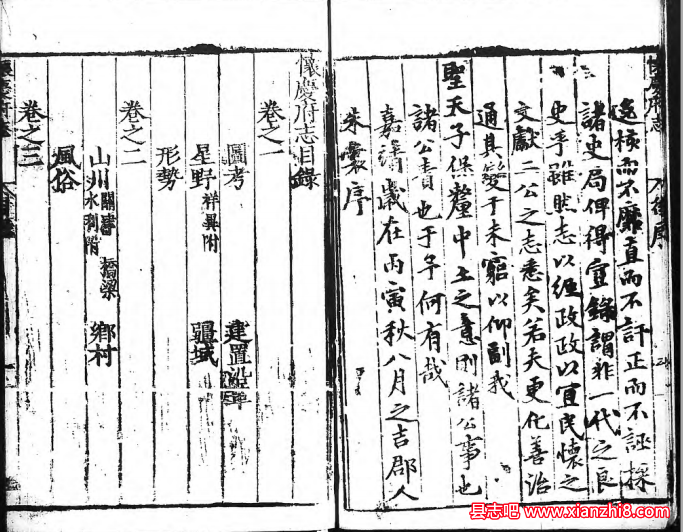 懷慶府志
後序
逸核而不靡直而不訐正而不誣採
諸史局俾得宣錄謂非一代之良
史乎雖然志以經政政以宜民懷之
文獻二公之志悉矣若夫更化善治
通其變于未窮以仰副我
聖天子保釐中土之意則諸公事也
諸公責也于予何有哉
嘉靖歲在丙寅秋八月之吉郡人
朱裳序
懷慶府志目錄
卷之一
圖考
建置沿革
星野 祥異附
疆域
形勢
卷之二
山川 關寨 水利附 橋梁
鄉村
風俗
卷之三
懷慶府志
县志吧 www.xianzhi8.com